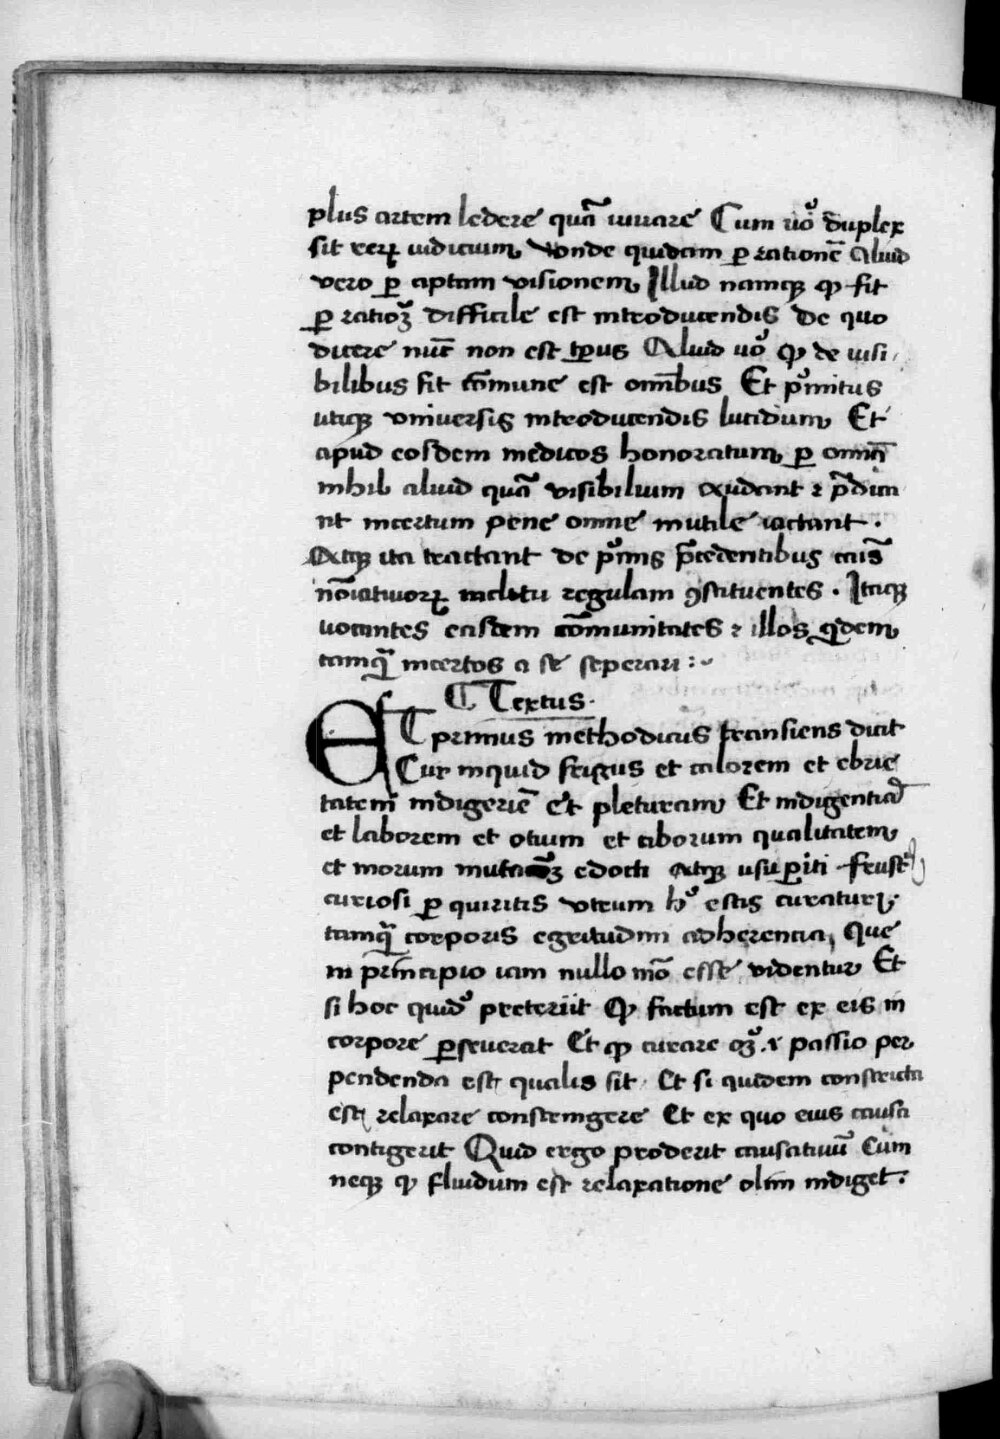 plus artem ledere quā iuuare Cum uo᷎ duplex
sit reꝝ iudicium Vnde quidem ꝑ rationē Aliud
vero ꝑ aptam visionem Illud namqꝫ ꝙ fit
ꝑ ratioꝫ difficile est introducendis De quo
dicere nūc non est tp̄us Aliud uo᷎ ꝙ de uisi
bilibus fit cōmune est omībus Et pͥmitus
utiqꝫ vniuersis introducendis lucidum Et
apud eosdem medicos honoratum ꝑ omīa
nihil aliud quā visibilium audent ⁊ p̄dica
nt incertum pene omne inutile iactant .
Atqꝫ ita tractant de pͥmis p̄cedentibus
nōiatiuoꝝ regulam ꝯstituentes . Itaqꝫ
uocantes easdem cōmunitates ⁊ illos qͥdem
tamqͣ incertos a se seperari :~
¶ Textus.
ET primus methodicus transiens dicit
Cur inquid frigus et calorem et ebrie
tatem indigeriē et pleturam Et indigentiā
et laborem et otium et ciborum qualitatem
et morum edocti atqꝫ usu ꝑiti
curiosi ꝑ quiritis vtrum estis curaturi
tamqͣ corporis egritudini adherencia Que
in principio iam nullo mō esse videntur Et
si hoc quid᷎ preteriit ꝙ factum est ex eis in
corpore ꝑseuerat Et ꝙ curare passio per
pendenda est qualis sit Et si quidem constricta
est relaxare constringere Et ex quo eius causa
contigerit Quid ergo proderit causatiuū Cum
neqꝫ ꝙ fluidum est relaxatione olim indiget .